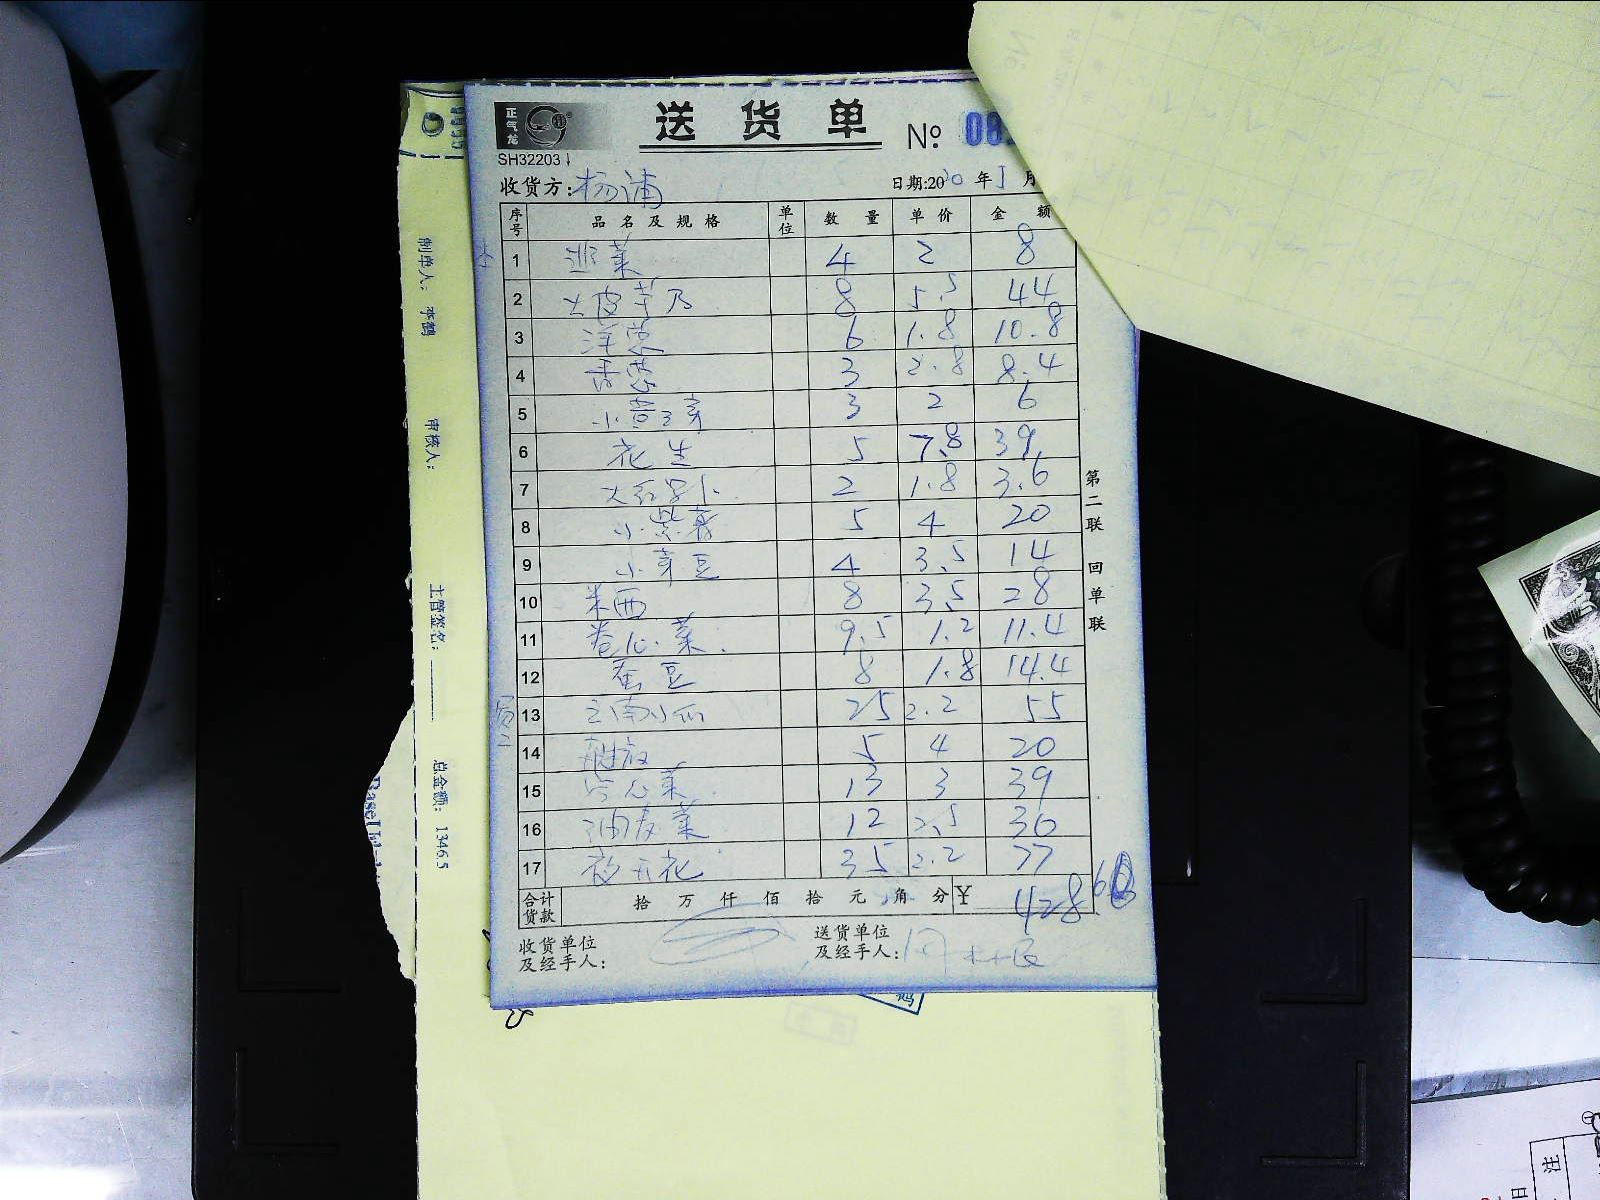 正气龙
送货单 № 08
SH32203
收货方: 杨浦 日期:2020年5月
序号 品名及规格 单位 数量 单价 金额
1 菜 4 2 8
2 大皮芋艿 8 5.5 44
3 洋葱 6 1.8 10.8
4 香葱 3 2.8 8.4
5 小 3 2 6
6 花生 5 7.8 39
7 大红萝卜 2 1.8 3.6
8 小紫薯 5 4 20
9 小芽豆 4 3.5 14
10 米西 8 3.5 28
11 卷心菜 9.5 1.2 11.4
12 蚕豆 8 1.8 14.4
13 云南小瓜 25 2.2 55
14 5 4 20
15 空心菜 13 3 39
16 油麦菜 12 2.5 30
17 夜开花 35 2.2 77
合计货款 拾 万 仟 佰 拾 元 角 分 ¥ 428.60
收货单位及经手人:
送货单位及经手人:
第二联 回单联
制单人: 李鹤
审核人:
主管签名:
总金额: 1346.5
注
日